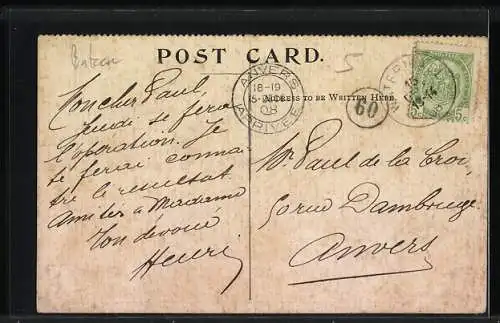 POST CARD.
5
ANVERS
18-19
08
ARRIVÉE
ADDRESS TO BE WRITTEN HERE
60
Mon cher Paul,
Jeudi se fera
l'opération. Je
te ferai connaî-
tre le résultat
Amitiés à Madame
Ton dévoué
Henri
Mr Paul de la Croix,
50 rue Dambrugge
Anvers